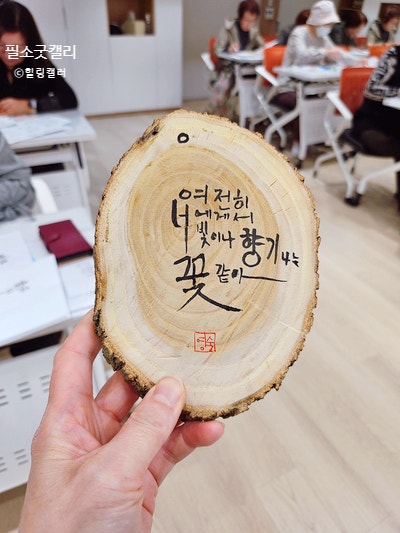 필소굿캘리
©힐링캘러
여전히
너에게서
빛이나 향기나는
꽃 같아